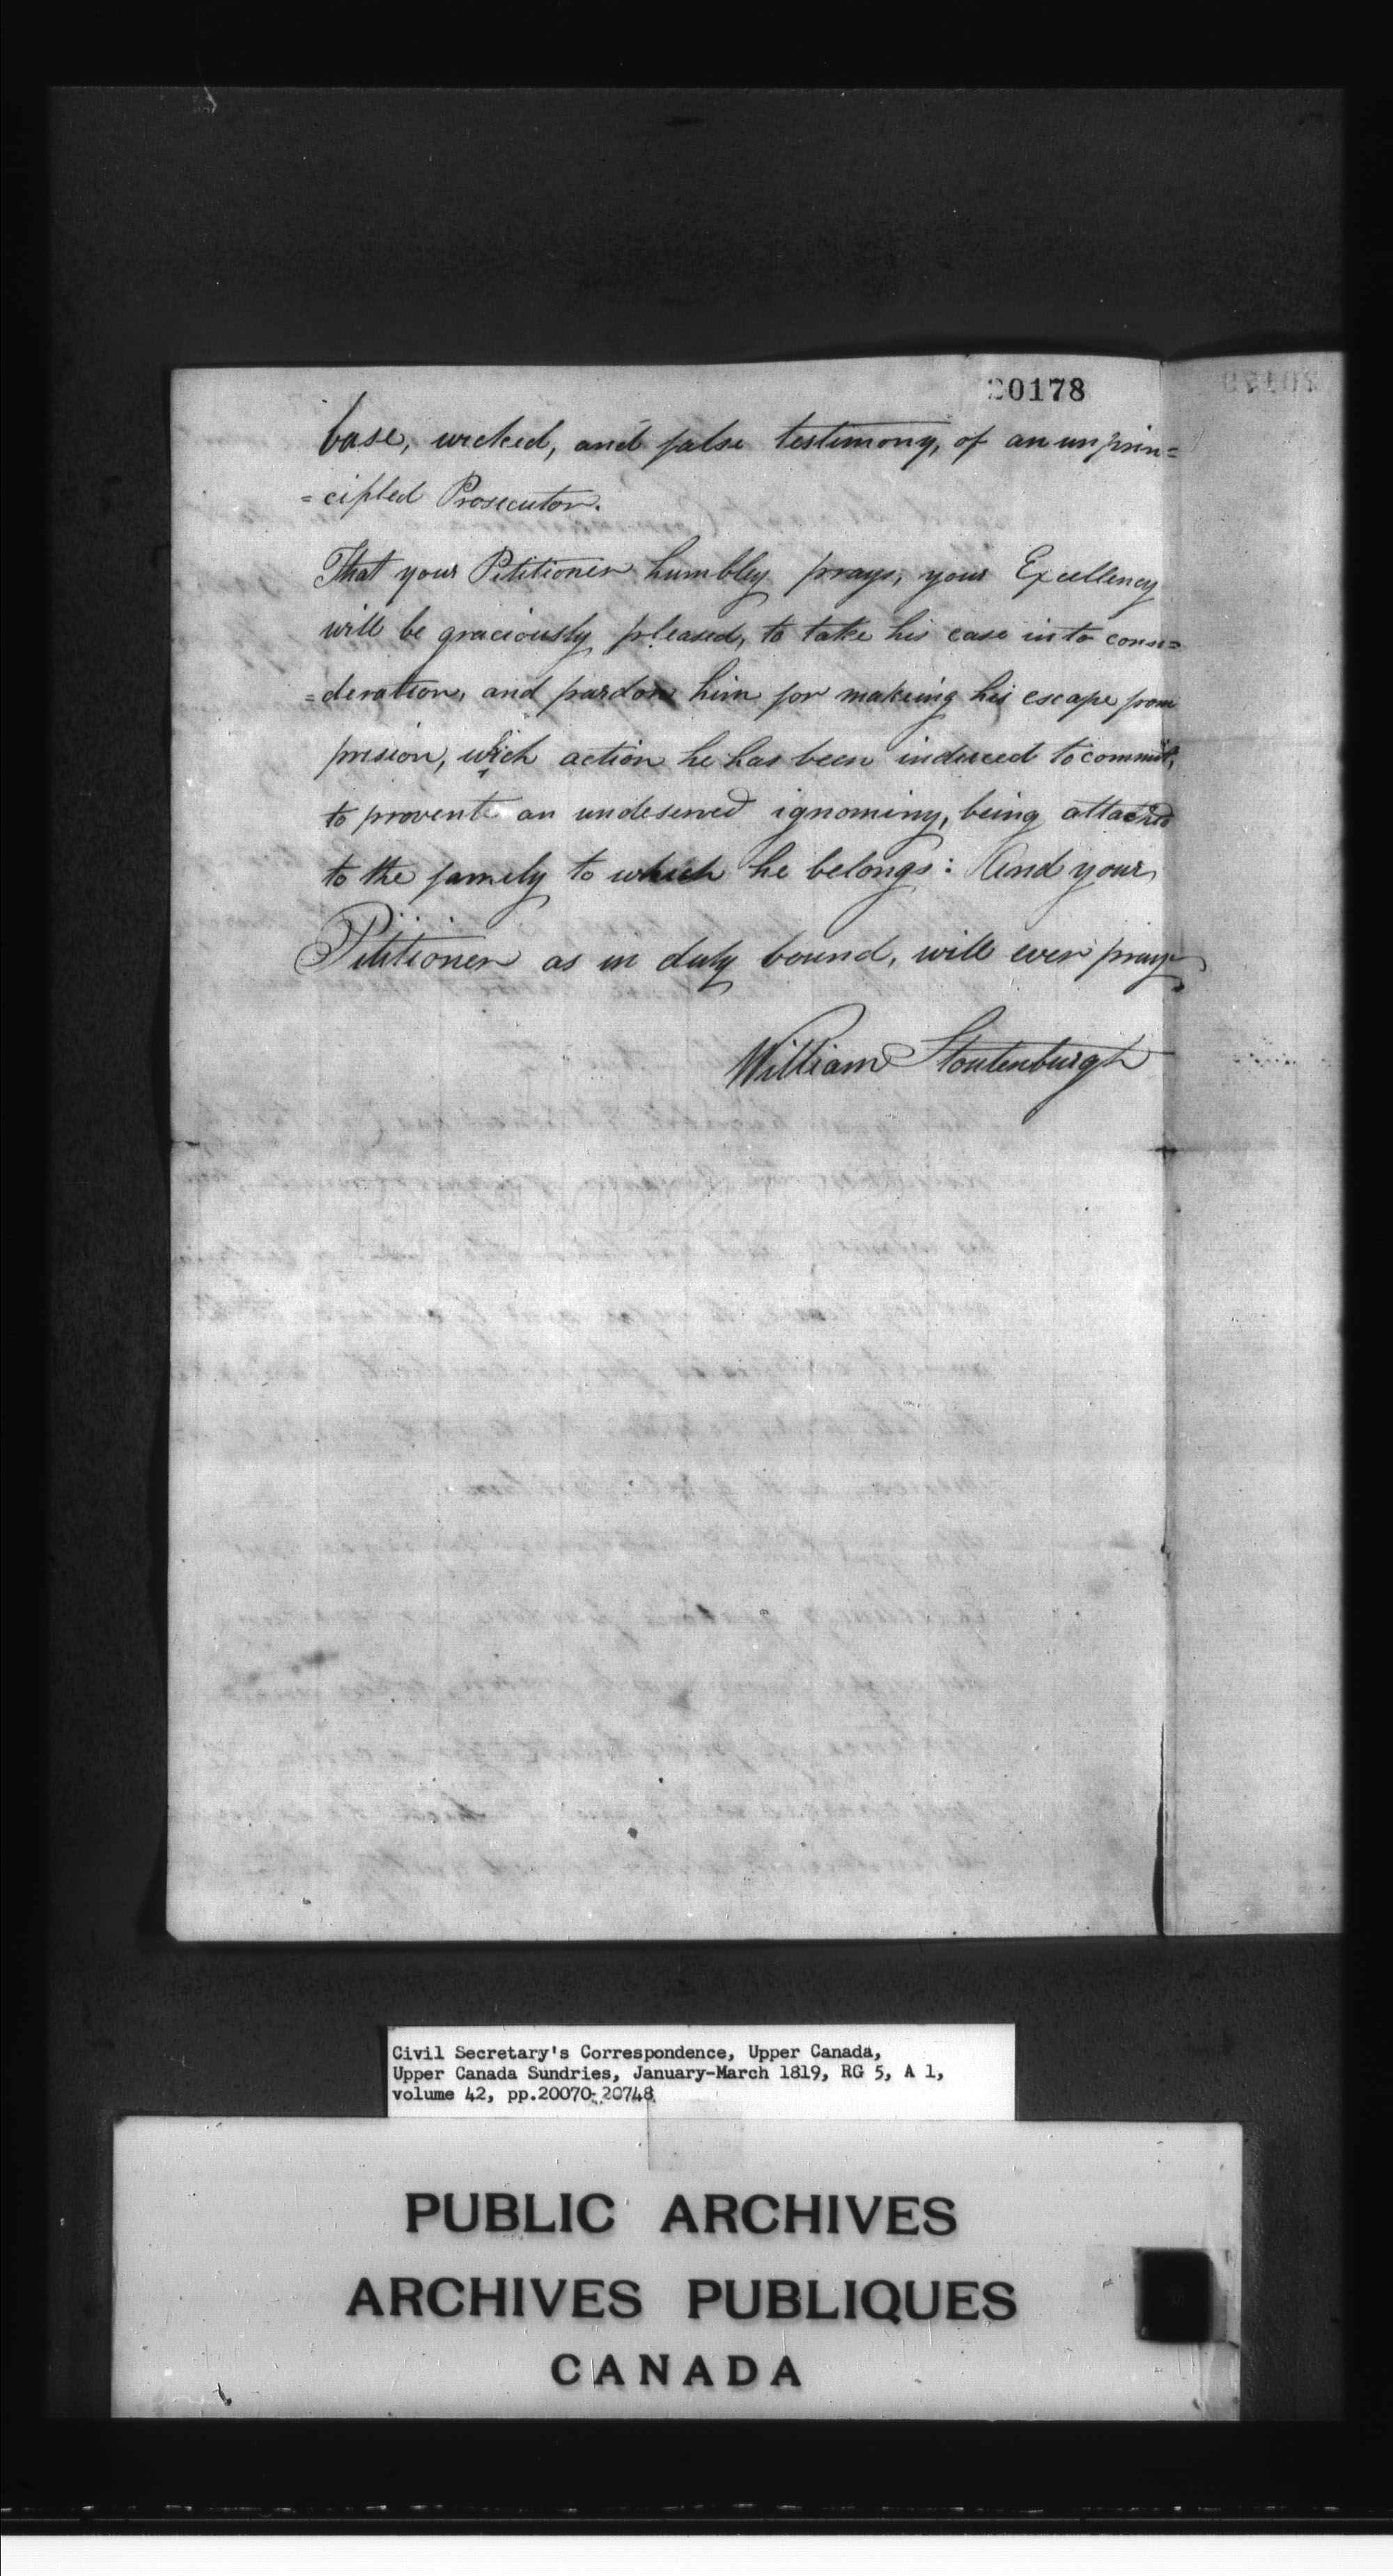 20178
base, wicked, and false testimony, of an unprin=
=cipled Prosecutor.
That your Petitioner humbley prays, your Excellency
will be graciously pleased, to take his case into consi=
=deration, and pardon him for makeing his escape from
prision, which action he has been induced to commit,
to provente an undeserved ignominy, being attached
to the family to which he belongs: And your
Petitioner as in duty bound, will ever pray
William Stoutenburgh
Civil Secretary's Correspondence, Upper Canada,
Upper Canada Sundries, January-March 1819, RG 5, A 1,
volume 42, pp.20070-20748
PUBLIC ARCHIVES
ARCHIVES PUBLIQUES
CANADA